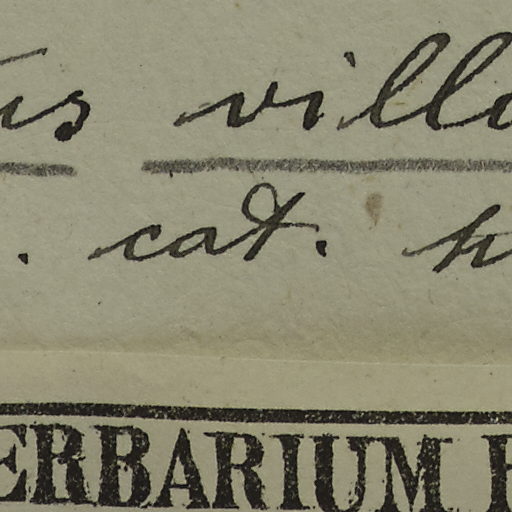 us villo
. cat. h
ERBARIUM